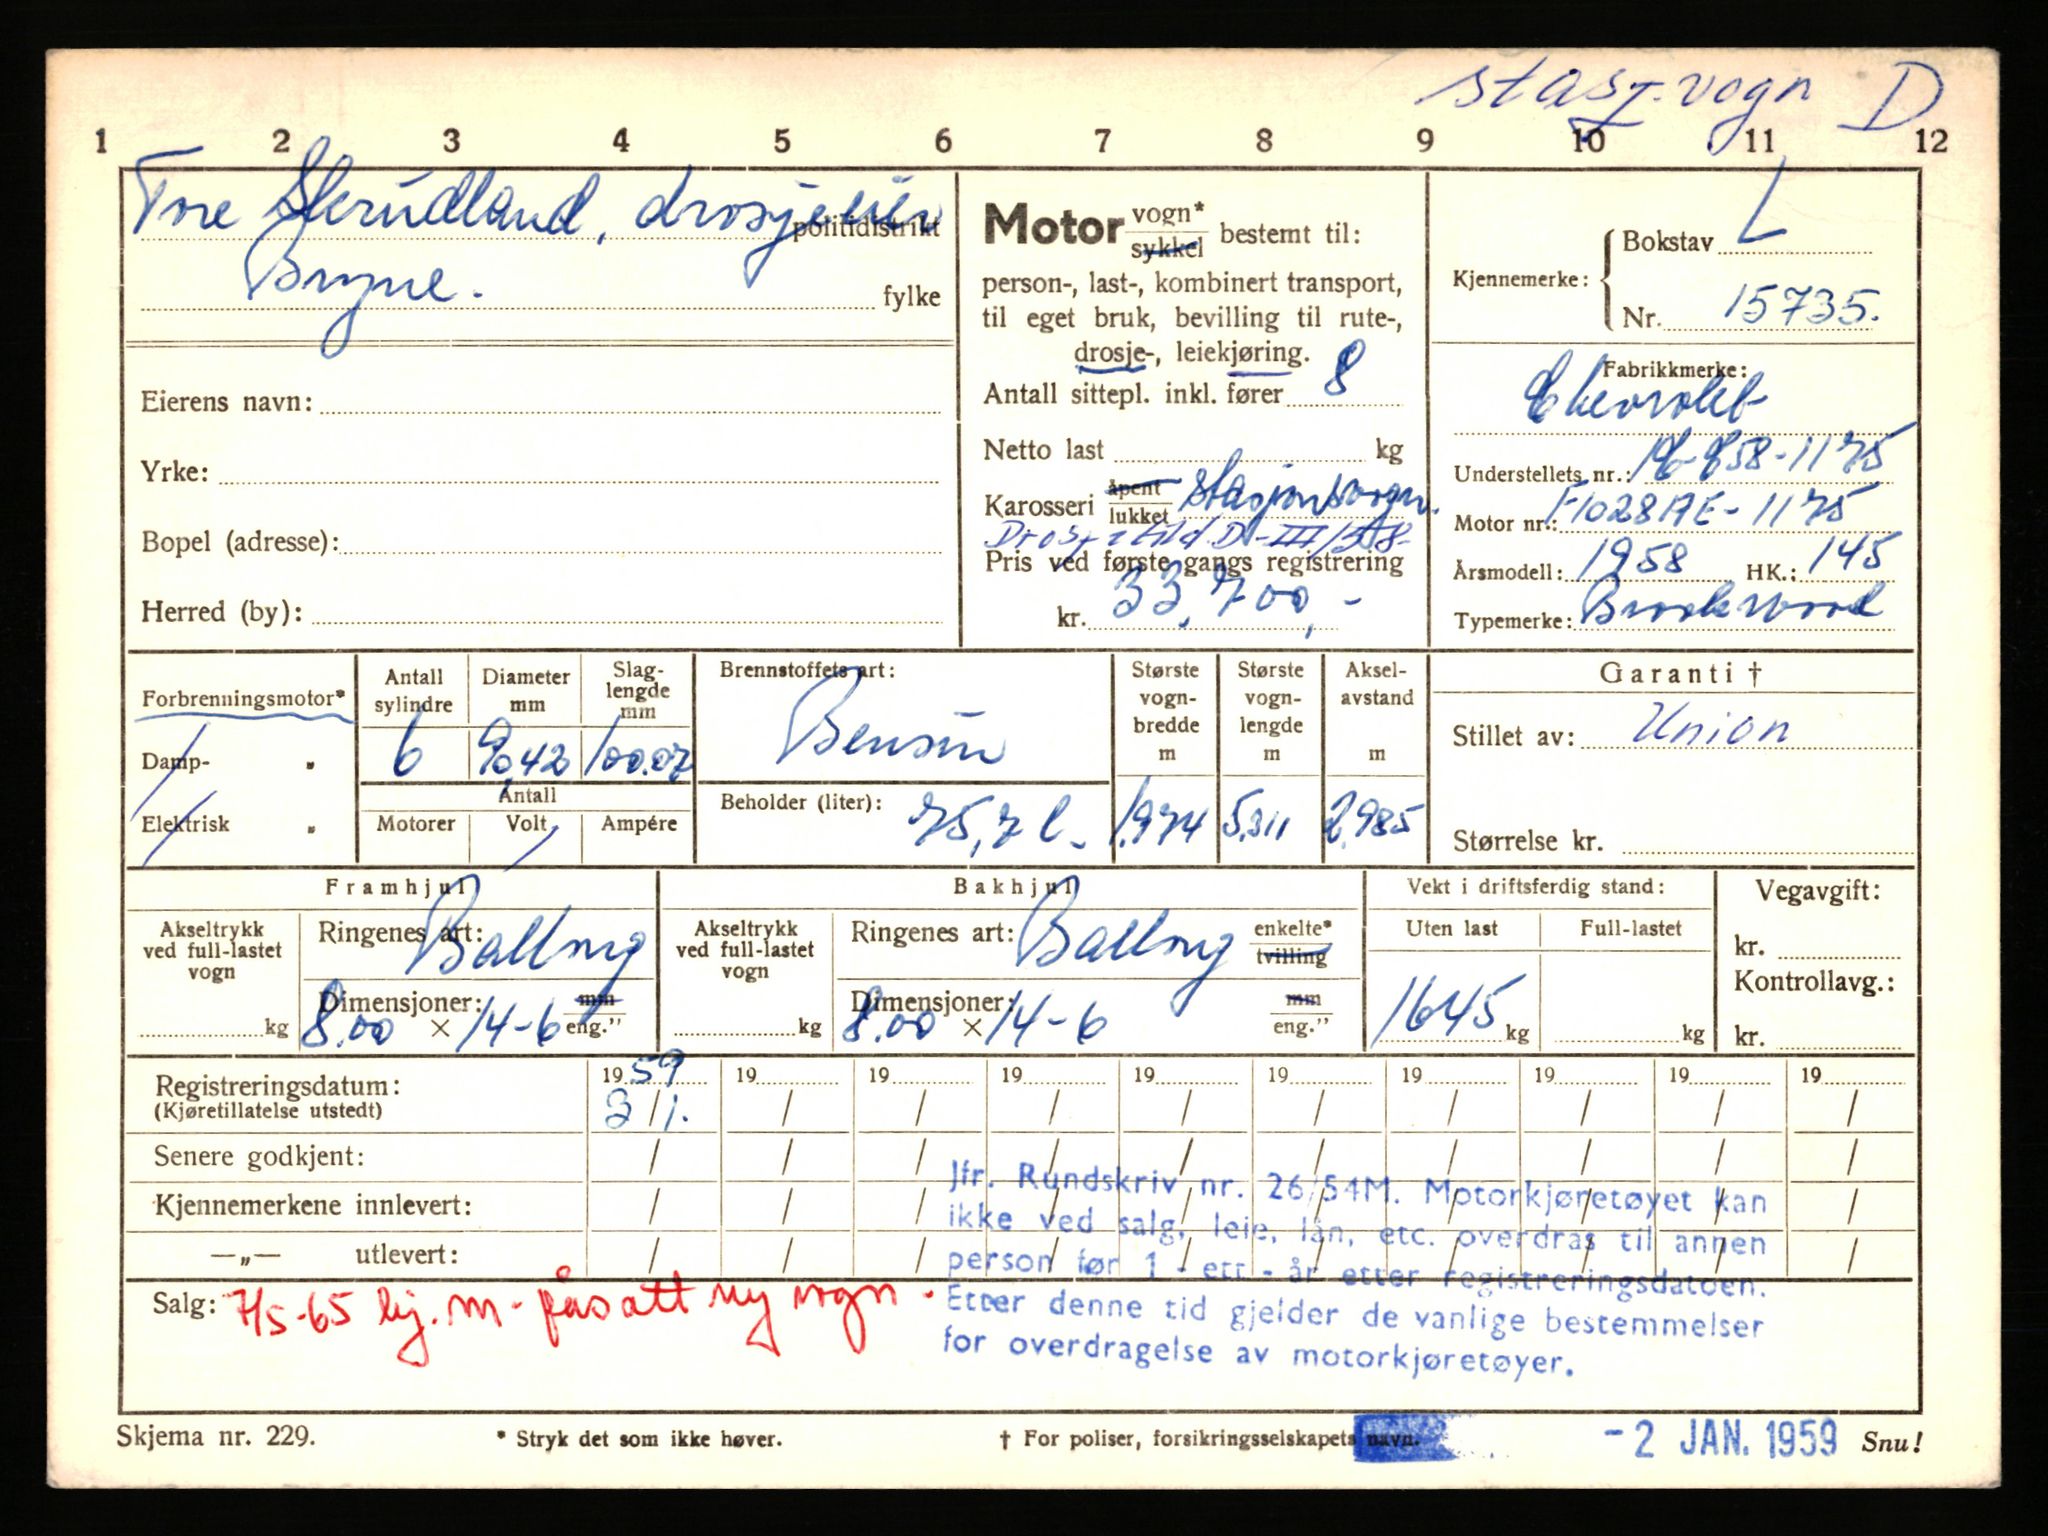 stasj.vogn D
1 2 3 4 5 6 7 8 9 10 11 12
Tore Skrudland, drosjeeier
politidistrikt
Bryne.
fylke
Eierens navn:
Yrke:
Bopel (adresse):
Herred (by):
Motor vogn* sykkel bestemt til:
person-, last-, kombinert transport,
til eget bruk, bevilling til rute-,
drosje-, leiekjøring.
Antall sittepl. inkl. fører 8
Netto last kg
Karosseri åpent lukket stasjonsvogn.
D-III/58-
Pris ved første gangs registrering
kr. 33.700,-
Kjennemerke: Bokstav L
Nr. 15735.
Fabrikkmerke:
Chevrolet
Understellets nr.: 58-1175
Motor nr.: F1028AE-1175
Årsmodell: 1958 HK.: 145
Typemerke: Brookwood
Forbrenningsmotor*
Damp- "
Elektrisk "
Antall sylindre Diameter mm Slag-lengde mm
6 90,42 100.07
Antall
Motorer Volt Ampére
Brennstoffets art:
Bensin
Beholder (liter): 75,7 l.
Største vogn-bredde m Største vogn-lengde m Aksel-avstand m
1,974 5,311 2,985
Garanti †
Stillet av: Union
Størrelse kr.
Framhjul
Akseltrykk ved full-lastet vogn kg
Ringenes art: Ballong
Dimensjoner: mm
8.00 × 14-6 eng."
Bakhjul
Akseltrykk ved full-lastet vogn kg
Ringenes art: Ballong enkelte* tvilling
Dimensjoner: mm
8.00 × 14-6 eng."
Vekt i driftsferdig stand:
Uten last Full-lastet
1645 kg kg
Vegavgift:
kr.
Kontrollavg.:
kr.
Registreringsdatum: 1959 19 19 19 19 19 19 19 19 19
(Kjøretillatelse utstedt) 3/1. / / / / / / / / /
Senere godkjent: / / / / / / / / / /
Kjennemerkene innlevert: / / / / / / / / / /
—„— utlevert: / / / / / / / / / /
Salg: 7/5-65 kj. m. påsatt ny vogn.
Jfr. Rundskriv nr. 26/54M. Motorkjøretøyet kan
ikke ved salg, leie, lån, etc. overdras til annen
person før 1 - ett - år etter registreringsdatoen.
Etter denne tid gjelder de vanlige bestemmelser
for overdragelse av motorkjøretøyer.
Skjema nr. 229. * Stryk det som ikke høver. † For poliser, forsikringsselskapets navn. -2 JAN. 1959 Snu!